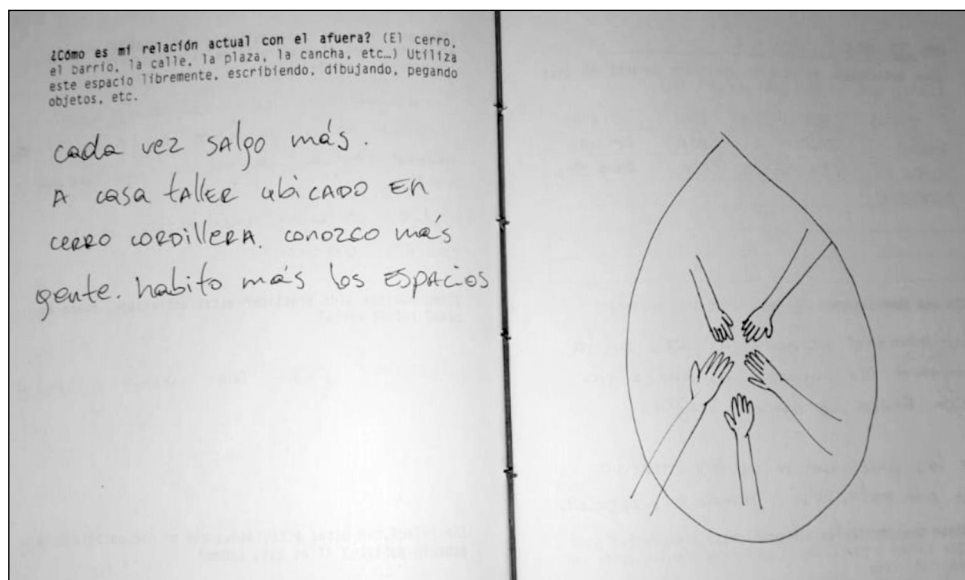 ¿Cómo es mi relación actual con el afuera? (El cerro,
el barrio, la calle, la plaza, la cancha, etc…) Utiliza
este espacio libremente, escribiendo, dibujando, pegando
objetos, etc.
cada vez salgo más.
A casa taller ubicado en
cerro cordillera. conozco más
gente. habito más los espacios